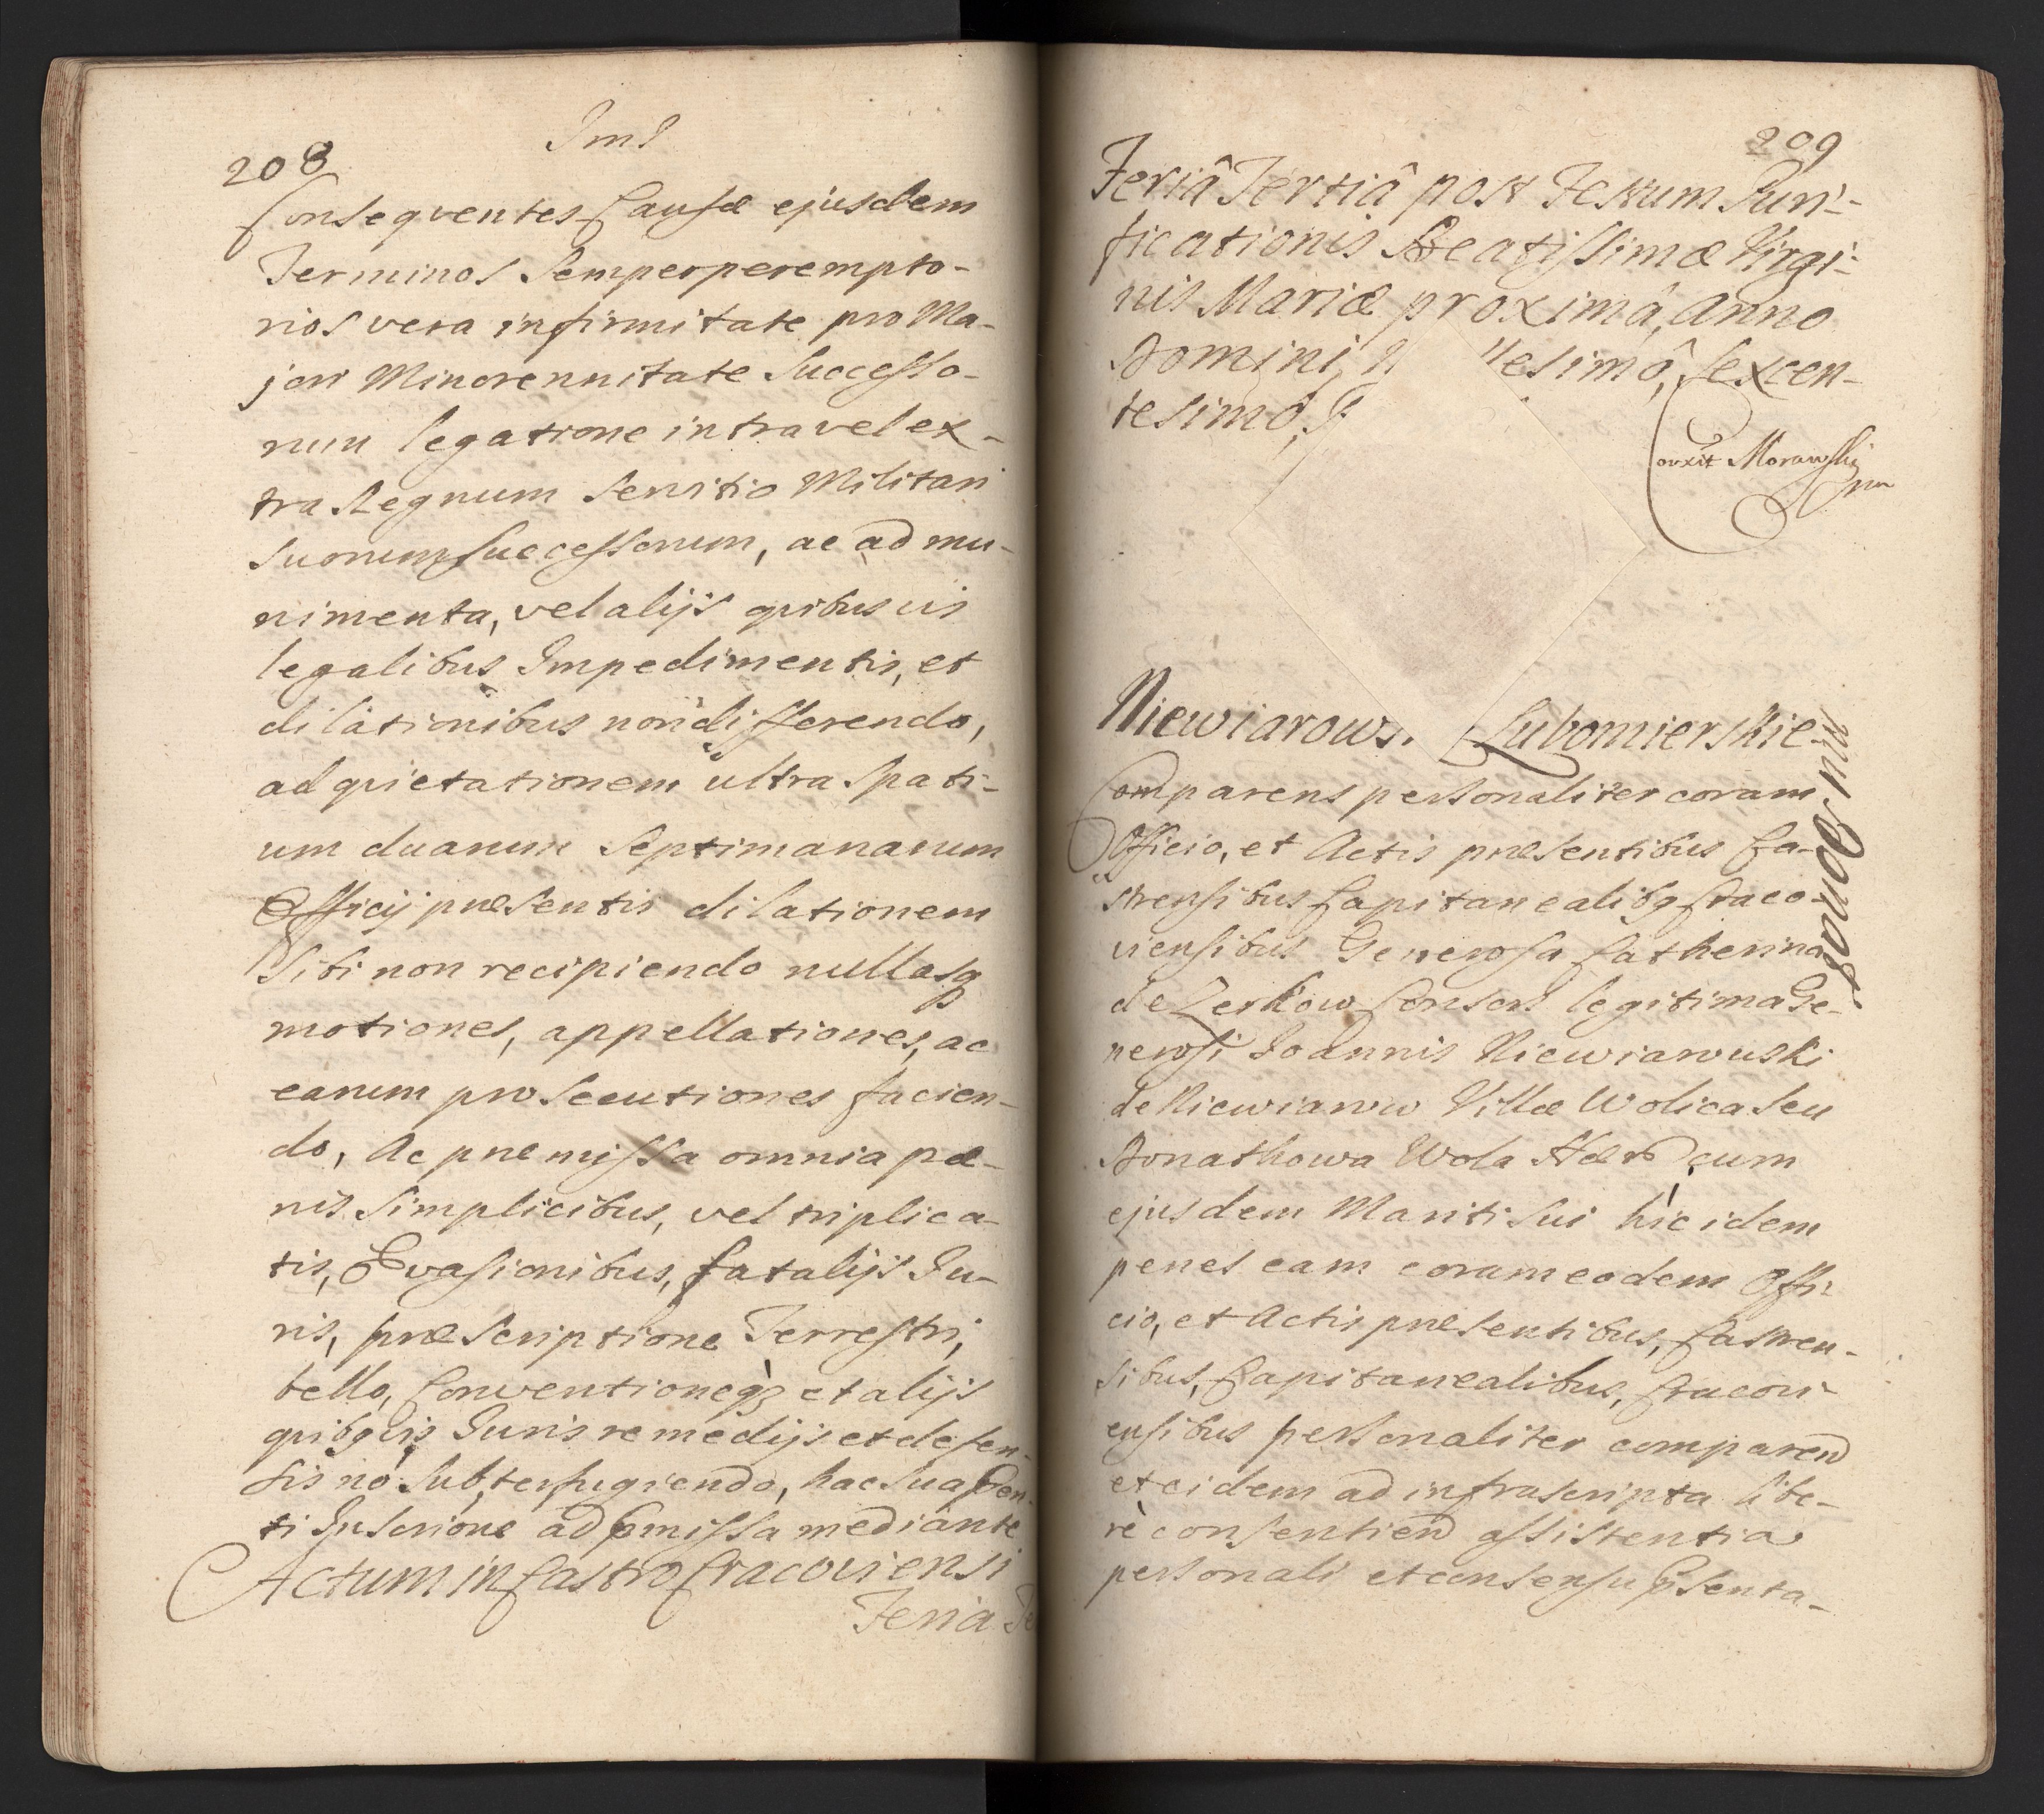 208
Consequentes Causæ ejusdem
Terminos Semper perempto-
rios vera infirmitate pro Ma-
jori Minorennitate Successo-
rum legatione intra vel ex-
tra Regnum Servitio Militari
Suorum Successorum, ac ad mu-
nimenta, vel alijs quibusvis
legalibus Impedimentis, et
dilationibus non differendo,
ad quietationem ultra Spati-
um duarum Septimanarum
Officij præsentis dilationem
Sibi non recipiendo nullasq
motiones, appellationes, ac
earum prosecutiones facien-
do, Ac præmissa omnia pæ-
nis Simplicibus, vel triplica-
tis, Evasionibus, fatalijs Ju-
ris, præscriptione Terrestri,
bello, Conventioneq et alijs
quibqvis Juris remedijs et defen-
sis nō Subterfugiendo, hac sua pñ-
ti Inscriōne ad pmissa mediante
Actum in Castro Cracoviensi
Feria Te
209
Feriâ Tertiâ post Festum Puri-
ficationis Beatissimæ Virgi-
nis Mariæ proximâ, Anno
Domini lesimô, Sexcen-
tesimô,
Corrxit Morawski
mn
Niewiarows. Lubomierskie-
mu, Donat
Comparens personaliter coram
Officio, et Actis præsentibus Ca-
strensibus Capitanealibq Craco-
viensibus Generosa Catherina
de Zerkow Consors legitima Ge-
nerosi Joannis Niewiarowski
de Niewiarow Villæ Wolica seu
Donathowa Wola Hær cum
ejusdem Mariti sui hìc idem
penes eam coram eodem Offi-
cio, et Actis præsentibus, Castren-
sibus, Capitanealibus, Cracovi-
ensibus personaliter comparen
et eidem ad infrascripta libe-
rè consentien assistentia
personali et consensu psenta-